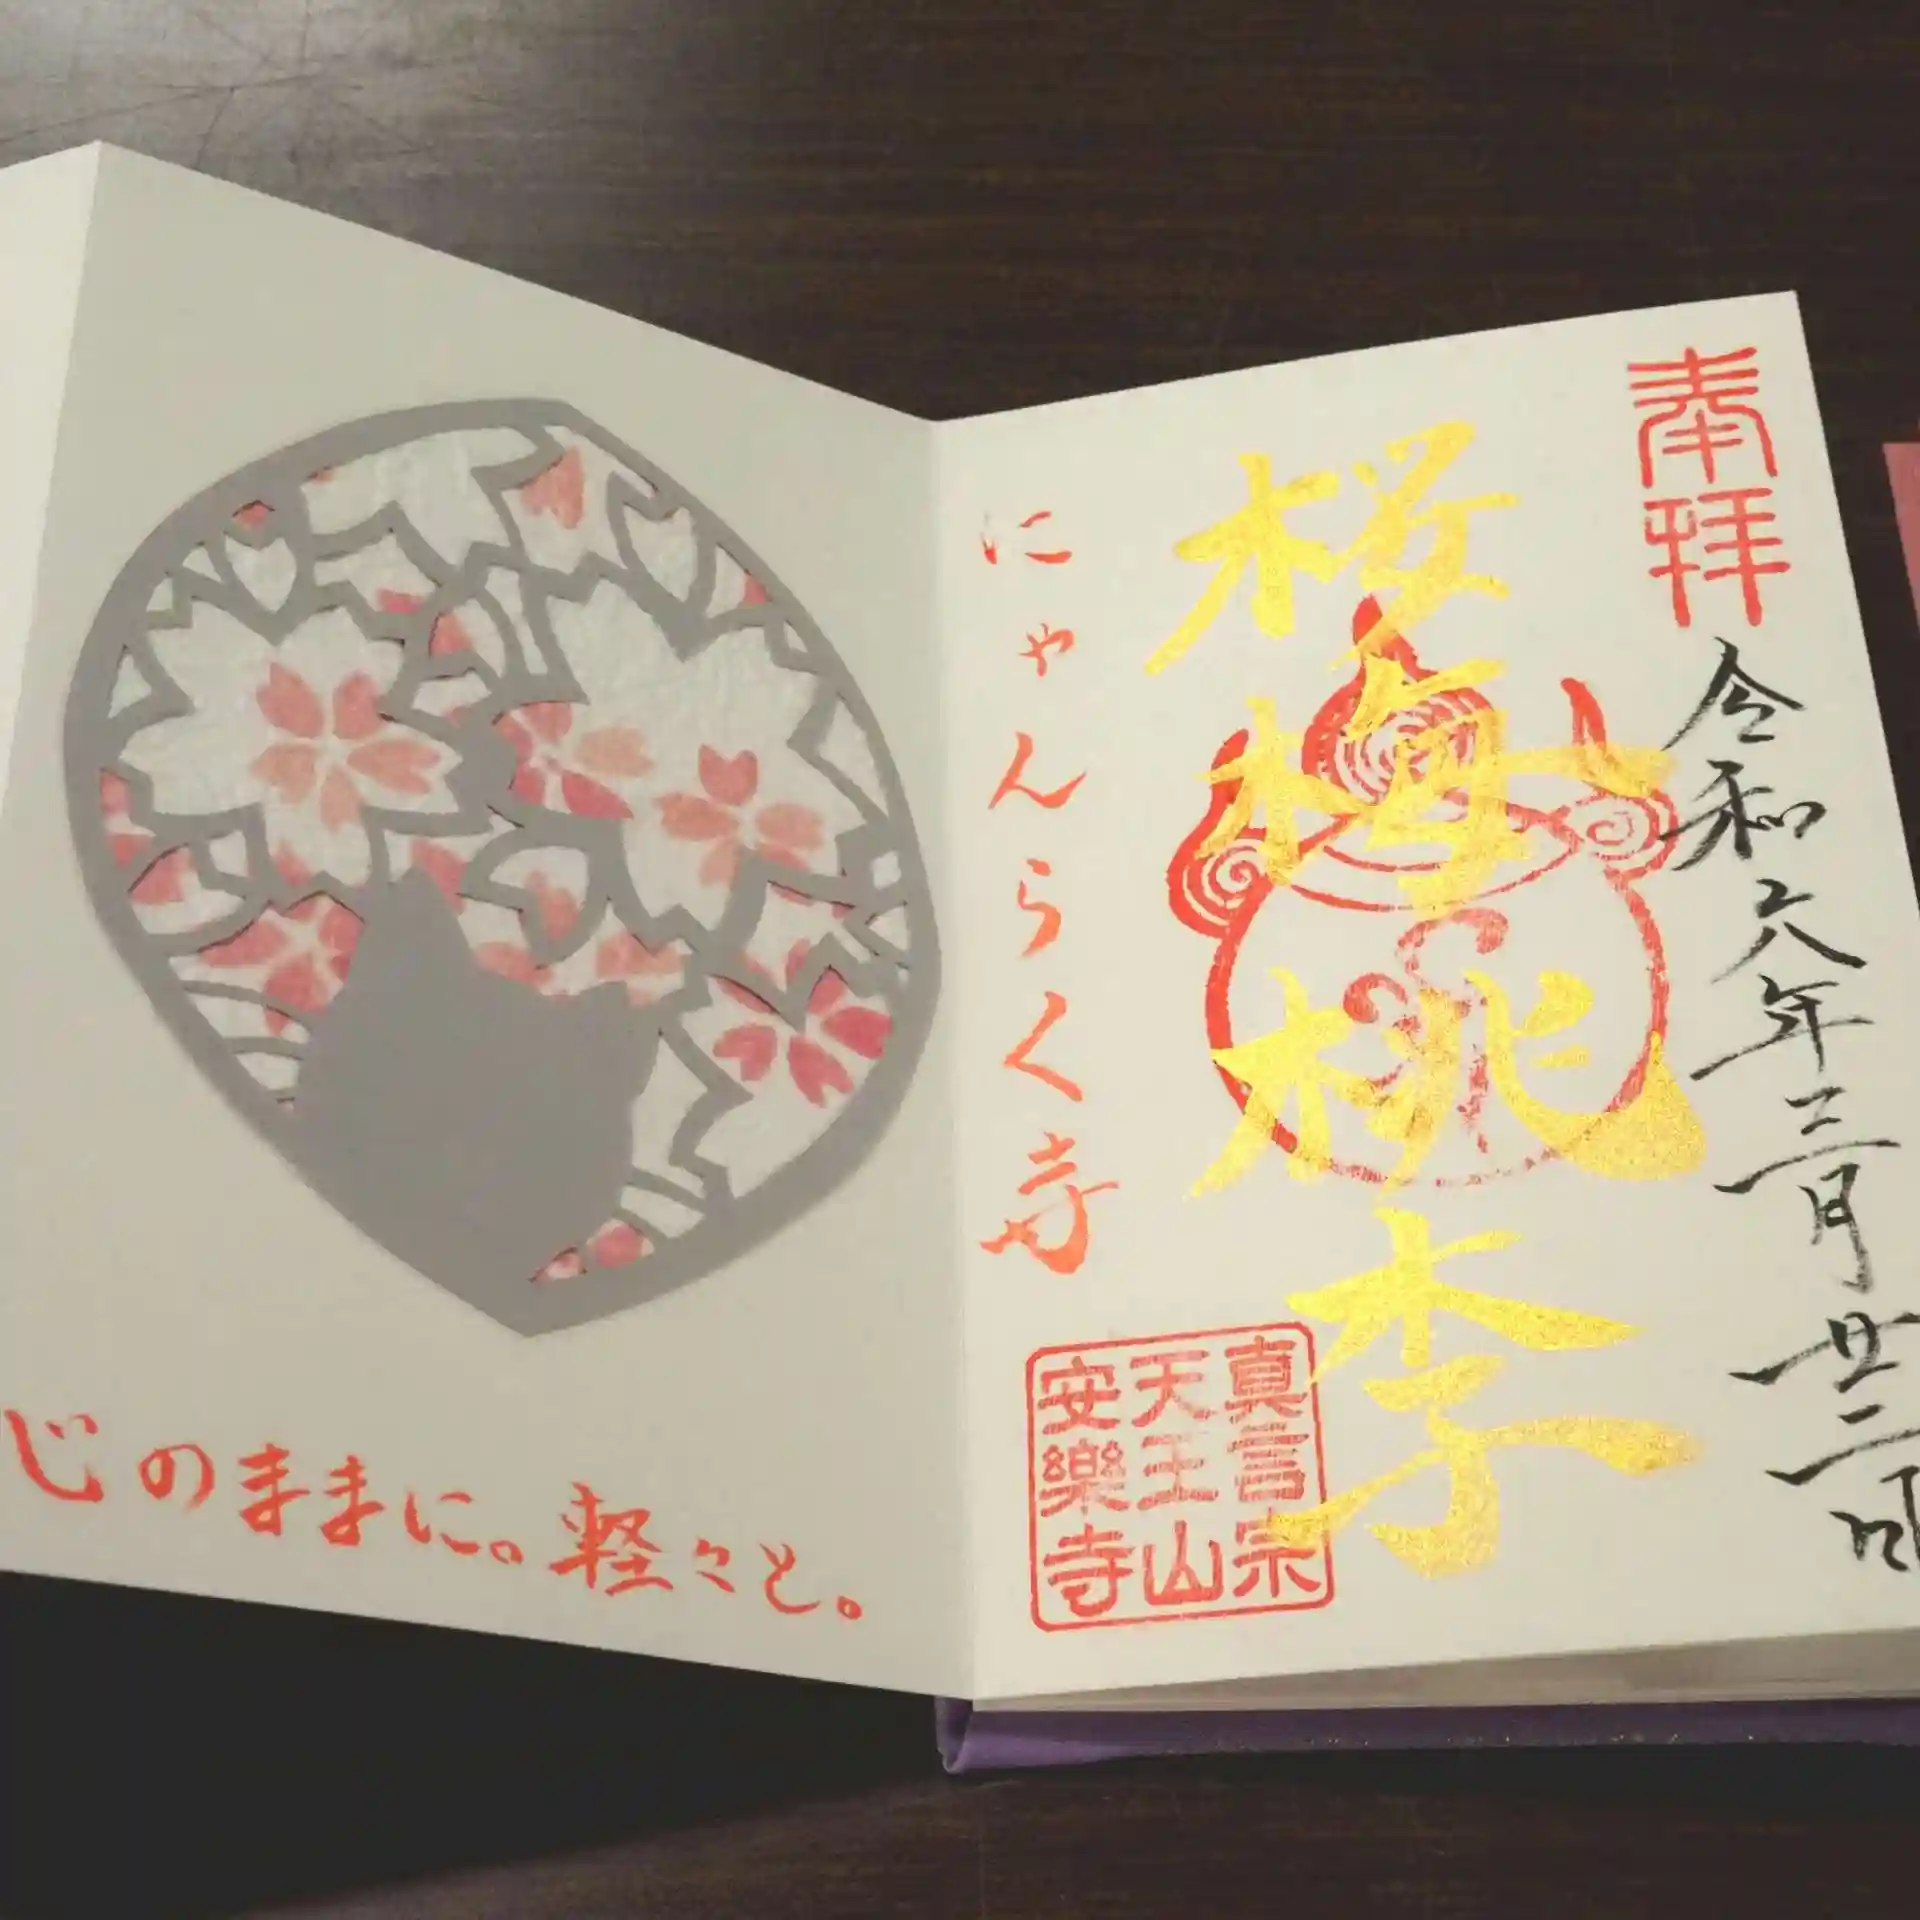 奉拝
令和六年三月廿二日
桜梅桃李
にゃんらく寺
真言宗
天王山
安樂寺
じのままに。軽々と。